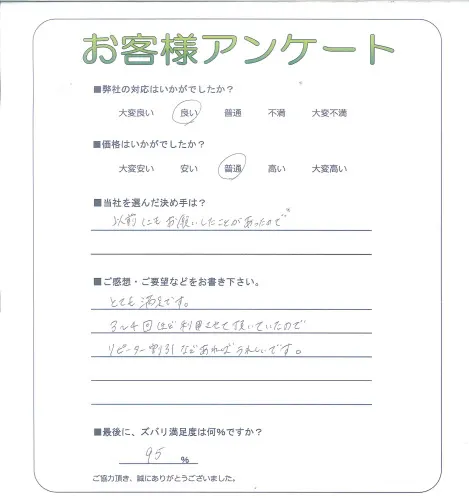 お客様アンケート
■弊社の対応はいかがでしたか？
大変良い 良い 普通 不満 大変不満
■価格はいかがでしたか？
大変安い 安い 普通 高い 大変高い
■当社を選んだ決め手は？
以前にもお願いしたことがあったので
■ご感想・ご要望などをお書き下さい。
とても満足です。
3～4回ほど利用させて頂いていたので
リピーター割引などあればうれしいです。
■最後に、ズバリ満足度は何%ですか？
95 %
ご協力頂き、誠にありがとうございました。